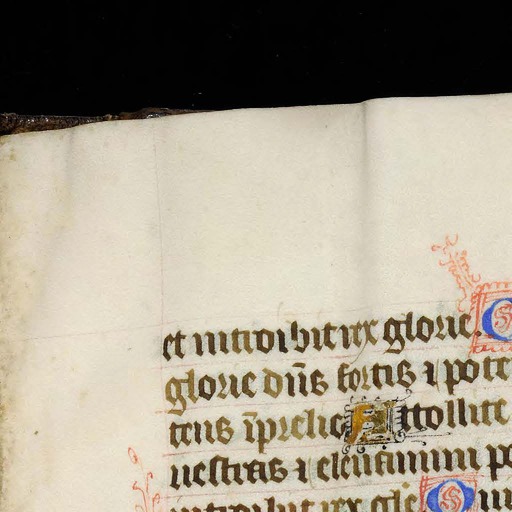 et introibit rex glorie. Q
glorie dñs fortis ⁊ pote
tens ī prelio Attollite
uestras ⁊ eleuamini po
introibit rex glīe Qui